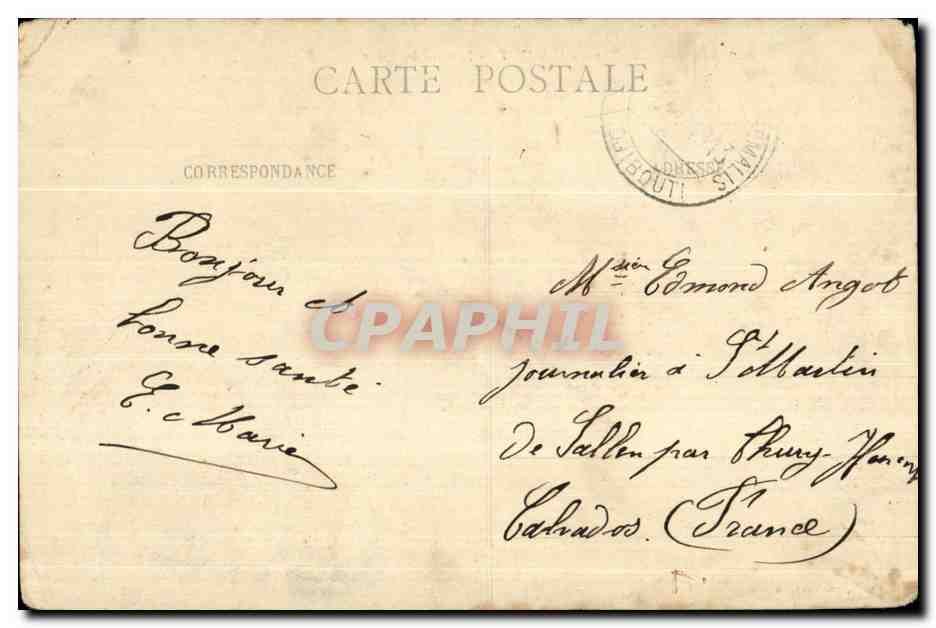 CARTE POSTALE
CORRESPONDANCE
ADRESSE
Bonjour et
bonne santé
E. Marie
Msieu Edmond Angot
journalier à St Martin
de Sallen par Thury-Harcourt
Calvados. (France)
CPAPHIL